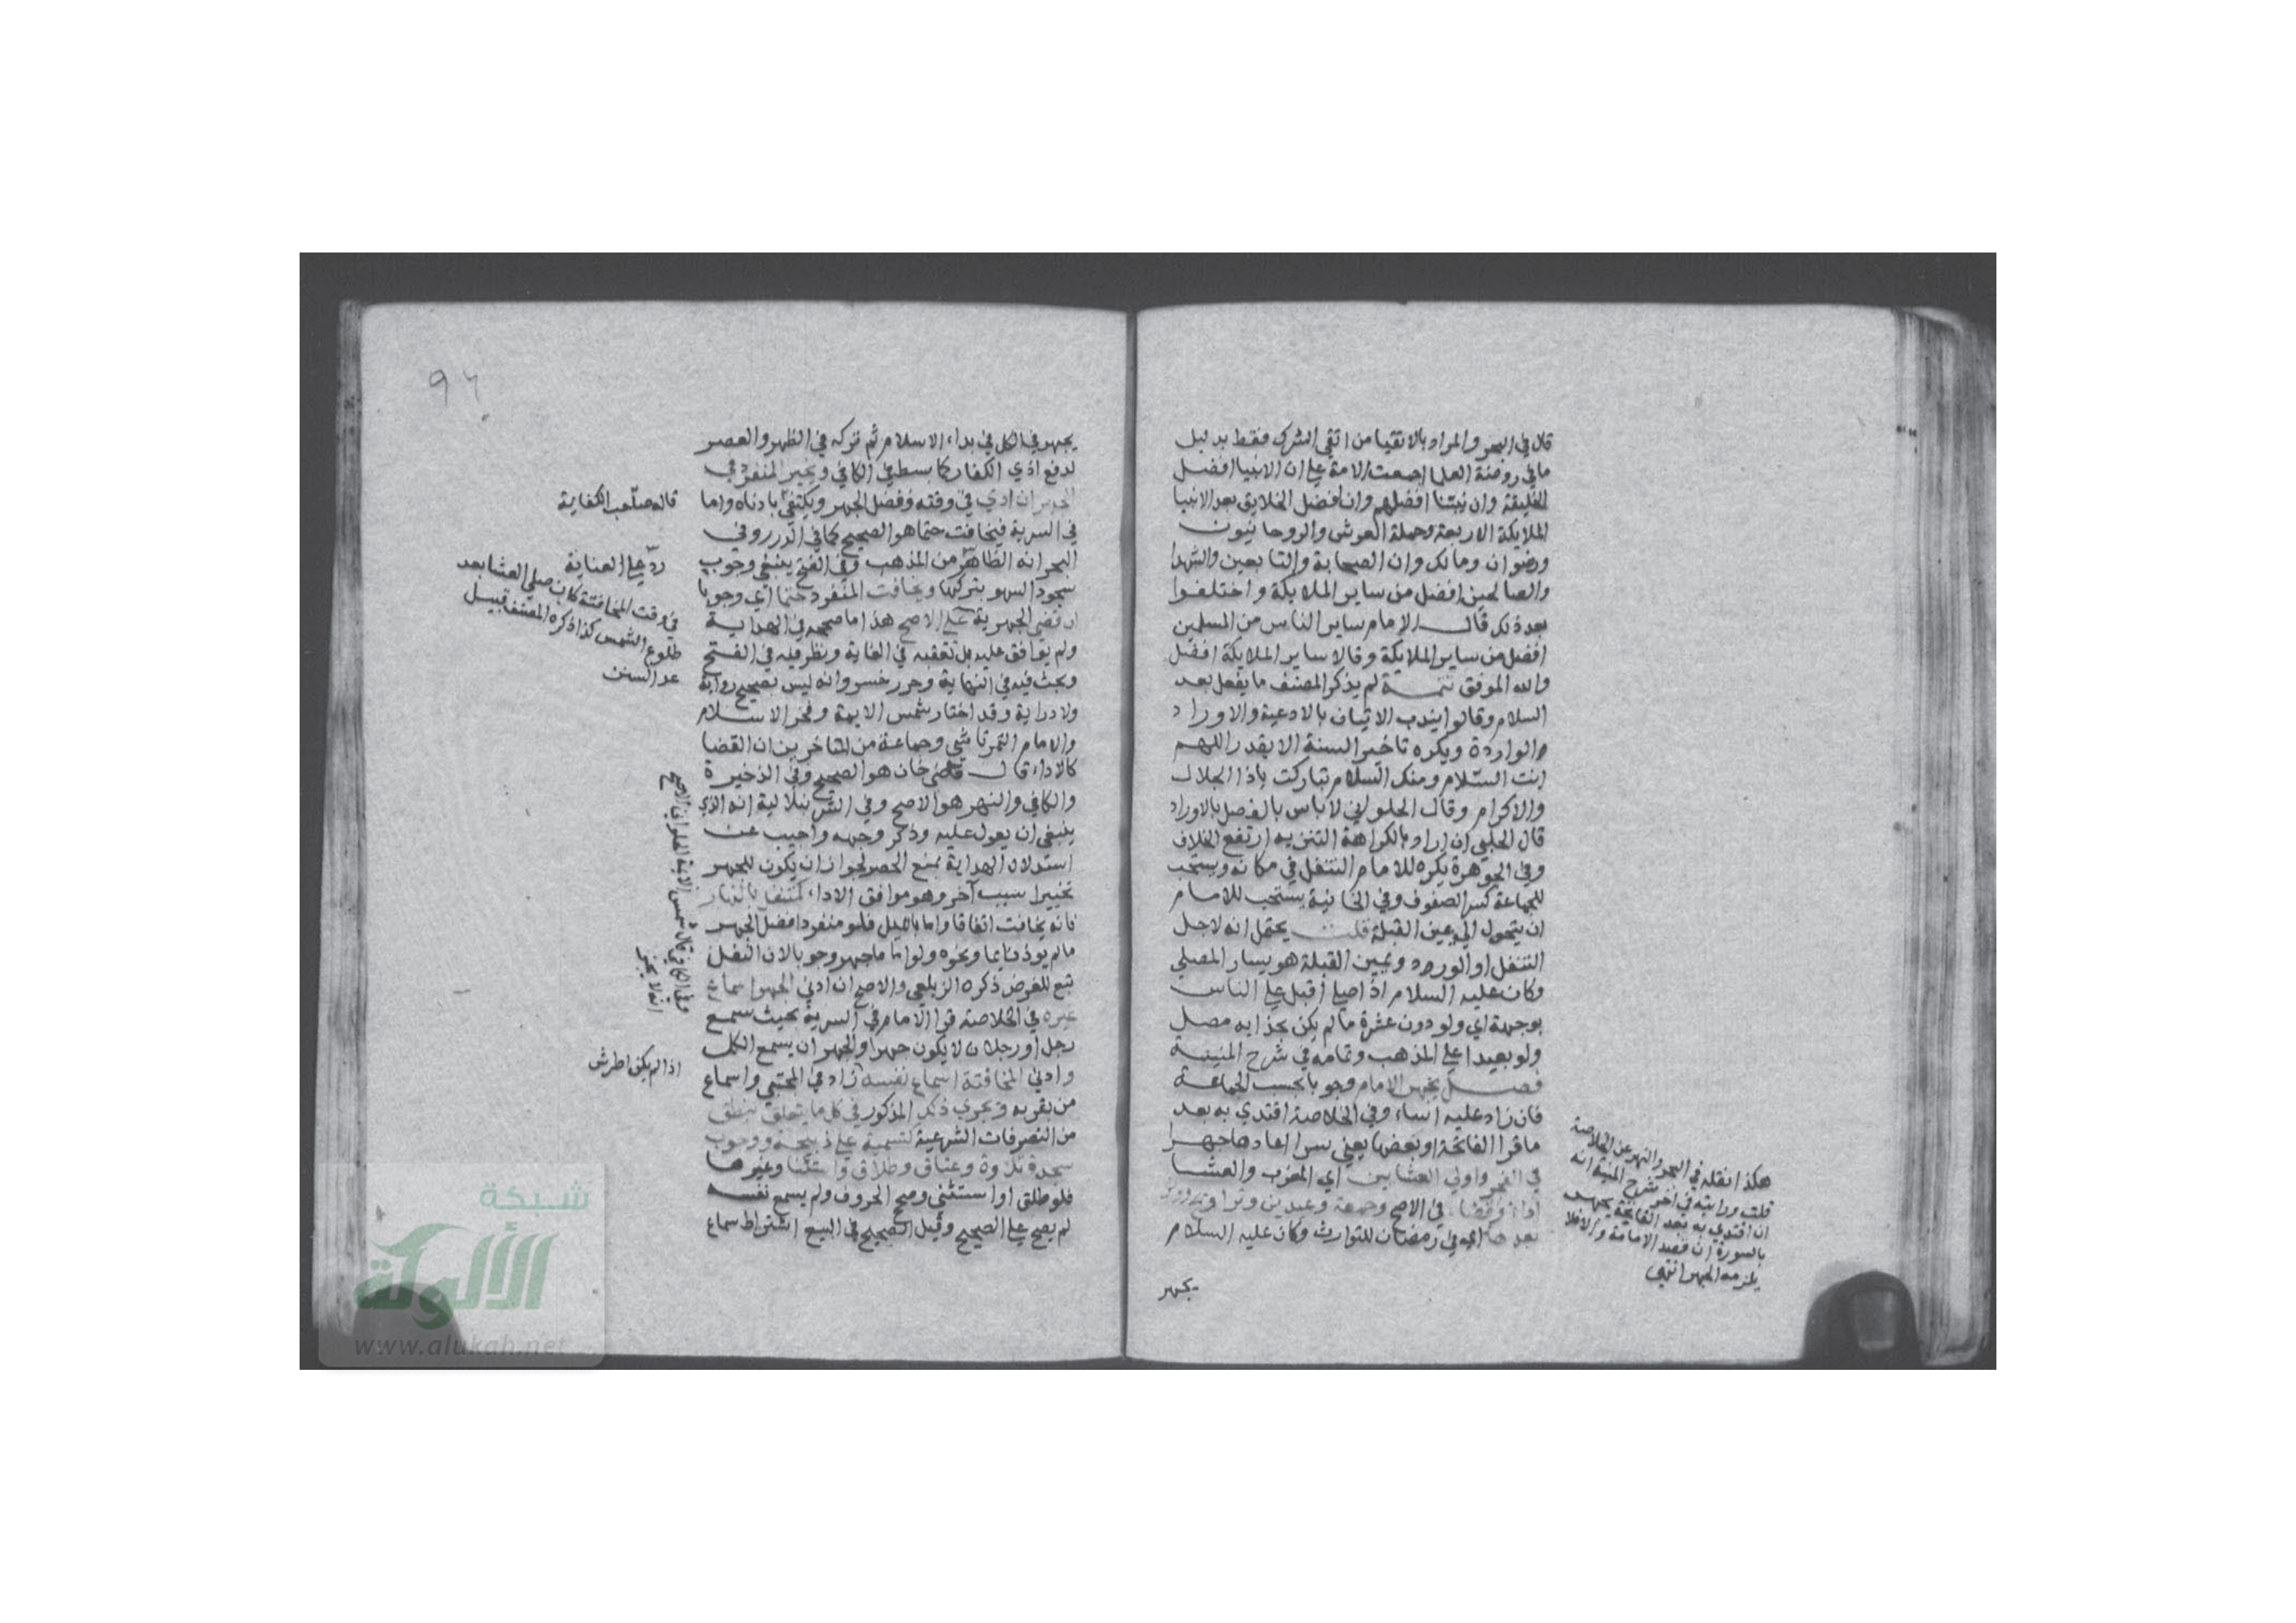 قال في البحر والمراد بالاتقيا من اتقي الشرك فقط بدليل
ما في روضة العلما اجمعت الامة علي ان الانبيا افضل
الخليقة وان نبينا افضلهم وان افضل الخلايق بعد الانبيا
الملايكة الاربعة وحملة العرش والروحانيون
ورضوان ومالك وان الصحابة والتابعين والشهدا
والصالحين افضل من ساير الملايكة واختلفوا
بعد ذلك قال الامام ساير الناس من المسلمين
افضل من ساير الملايكة وقالا ساير الملايكة افضل
والله الموفق تتمة لم يذكر المصنف ما يفعل بعد
السلام وقالوا يندب الاتيان بالادعية والاوراد
الواردة ويكره تاخير السنة الا بقدر اللهم
انت السلام ومنك السلام تباركت ياذا الجلال
والاكرام وقال الحلواني لا باس بالفصل بالاوراد
قال الحلبي ان اراد بالكراهة التنزيه ارتفع الخلاف
وفي الجوهرة يكره للامام التنفل في مكانه ويستحب
للجماعة كسر الصفوف وفي الخانية يستحب للامام
ان يتحول الي يمين القبلة قلت يحتمل انه لاجل
التنفل او الورد ويمين القبلة هو يسار المصلي
وكان عليه السلام اذا صلي اقبل علي الناس
بوجهه اي ولو دون عشرة ما لم يكن بحذايه مصل
ولو بعيدا علي المذهب وتمامه في شرح المنية
فصل يجهر الامام وجوبا بحسب الجماعة
فان زاد عليه اساء وفي الخلاصة اقتدي به بعد
ما قرا الفاتحة او بعضها يعني سرا اعادها جهرا
في الفجر واولي العشاين اي المغرب والعشا
اداء وقضاء في الاصح وجمعة وعيدين وتراويح ووتر
بعدها اي في رمضان للتوارث وكان عليه السلام
يجهر
هكذا نقله في البحر والنهر عن الخلاصة
قلت ورايته في اخر شرح المنية انه
ان اقتدي به بعد الفاتحة يجهر
بالسورة ان قصد الامامة والا فلا
يلزمه الجهر انتهي
٩٦
يجهر في الكل في بداء الاسلام ثم تركه في الظهر والعصر
لدفع اذي الكفار كما بسط في الكافي ويخير المنفرد في
الجهر ان ادي في وقته وفضل الجهر ويكتفي بادناه واما
في السرية فيخافت حتما هو الصحيح كما في الدرر وفي
البحر انه الظاهر من المذهب وفي الفتح ينبغي وجوب
سجود السهو بتركها ويخافت المنفرد حتما اي وجوبا
ان قضي الجهرية علي الاصح هذا ما صححه في الهداية
ولم يوافق عليه بل تعقبه في الغاية ونظر فيه في الفتح
وبحث فيه في النهاية وحرر خسرو انه ليس بصحيح رواية
ولا دراية وقد اختار شمس الايمة وفخر الاسلام
والامام التمرتاشي وجماعة من المتاخرين ان القضا
كالاداء قال قاضي خان هو الصحيح وفي الذخيرة
والكافي والنهر هو الاصح وفي الشرنبلالية انه الذي
ينبغي ان يعول عليه وذكر وجهه واجيب عن
استدلال الهداية بمنع الحصر لجواز ان يكون للجهر
تخييرا سبب آخر وهو موافق الاداء كمتنفل بالنهار
فانه يخافت اتفاقا واما بالليل فلو منفردا فضل الجهر
ما لم يوذ نايما ونحوه ولو اماما جهر وجوبا لان النفل
تبع للفرض ذكره الزيلعي والاصح ان ادني الجهر اسماع
غيره في الخلاصة قرا الامام في السرية بحيث سمع
رجل او رجلان لا يكون جهرا والجهر ان يسمع الكل
وادني المخافتة اسماع نفسه زاد في المجتبي واسماع
من بقربه ويجري ذلك المذكور في كل ما يتعلق بنطق
من التصرفات الشرعية كتسمية علي ذبيحة ووجوب
سجدة تلاوة وعتاق وطلاق واستثنا وغيرها
فلو طلق او استثني وصحح الحروف ولم يسمع نفسه
لم يصح علي الصحيح وقيل الصحيح في البيع اشتراط سماع
قاله صاحب الكفاية
رد علي العناية
في وقت المخافتة كان صلي العشا بعد
طلوع الشمس كذا ذكره المصنف قبيل
عد السنن
وفي الكافي قال شمس الايمة الحلواني الاصح
انه لا يجز
اذا لم يكن اطرش
شبكة
الألوكة
www.alukah.net